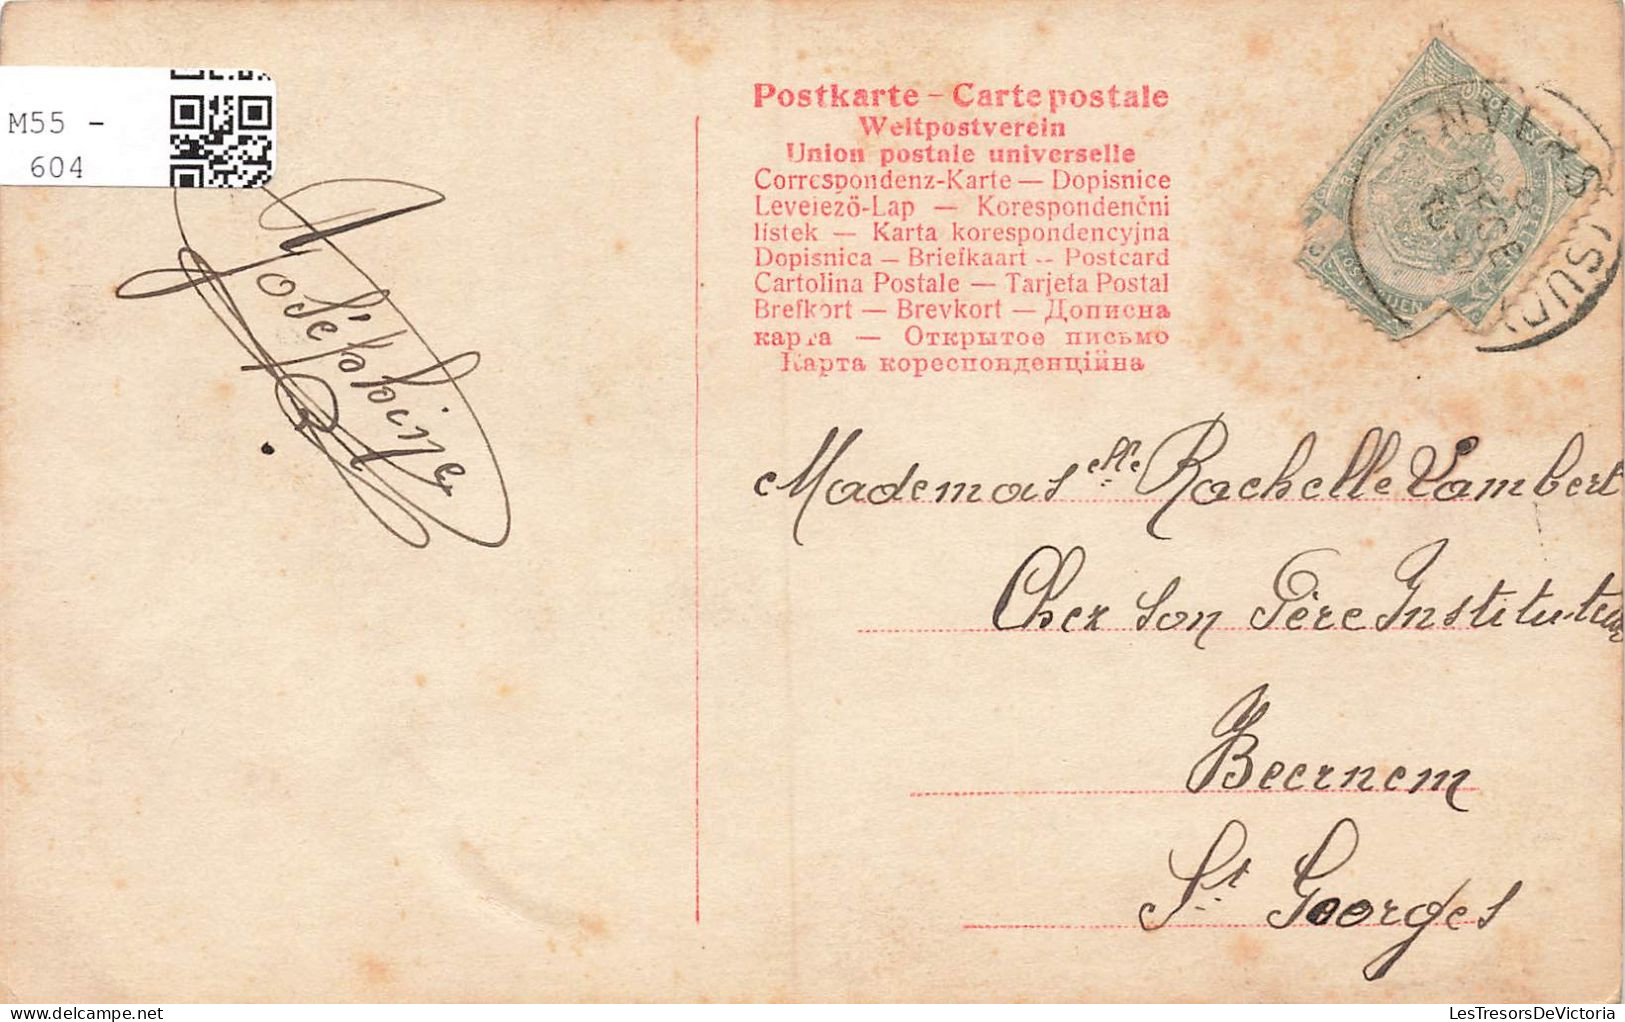 M55 -
604
Postkarte – Carte postale
Weltpostverein
Union postale universelle
Correspondenz-Karte — Dopisnice
Levelező-Lap — Korespondenčni
listek — Karta korespondencyjna
Dopisnica — Briefkaart -- Postcard
Cartolina Postale — Tarjeta Postal
Brefkort — Brevkort — Дописна
карта — Открытое письмо
Карта кореспонденційна
ANVERS (SUD)
Joséphine
Mademoiselle Rachelle Lambert
Chez Son Père Instituteur
Beernem
St. Georges
LesTresorsDeVictoria